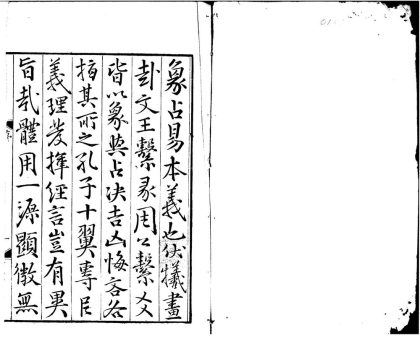 象占易本義也伏犧畫
卦文王繫彖周公繫爻
皆以象與占决吉凶悔吝各
指其所之孔子十翼專臣
義理發揮經言豈有異
旨哉體用一源顯微無